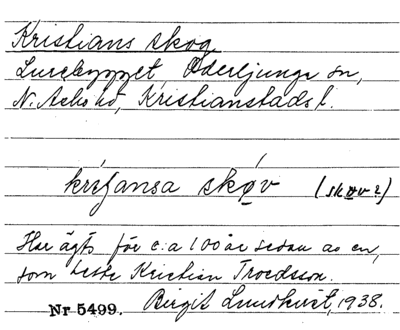 Kristians skog
Lurebygget, Öderljunga sn,
N. Åsbo hd, Kristianstads l.
kríʃansa skǫ́v (skøv?)
Har ägts för c:a 100 år sedan av en,
som hette Kristian Troedsson.
Nr 5499. Birgit Lundkvist, 1938.